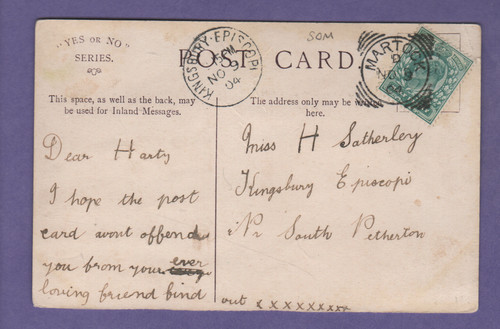 "YES OR NO"
SERIES.
POST CARD.
SOM
KINGSBURY-EPISCOPI
5 PM
NO 9
04
MARTOCK
D
NO 9
04
This space, as well as the back, may
be used for Inland Messages.
The address only may be written
here.
Dear Harty
I hope the post
card wont offend
you from your ever
loving friend find
out xxxxxxxxx
Miss H Satherley
Kingsbury Episcopi
Nr South Petherton